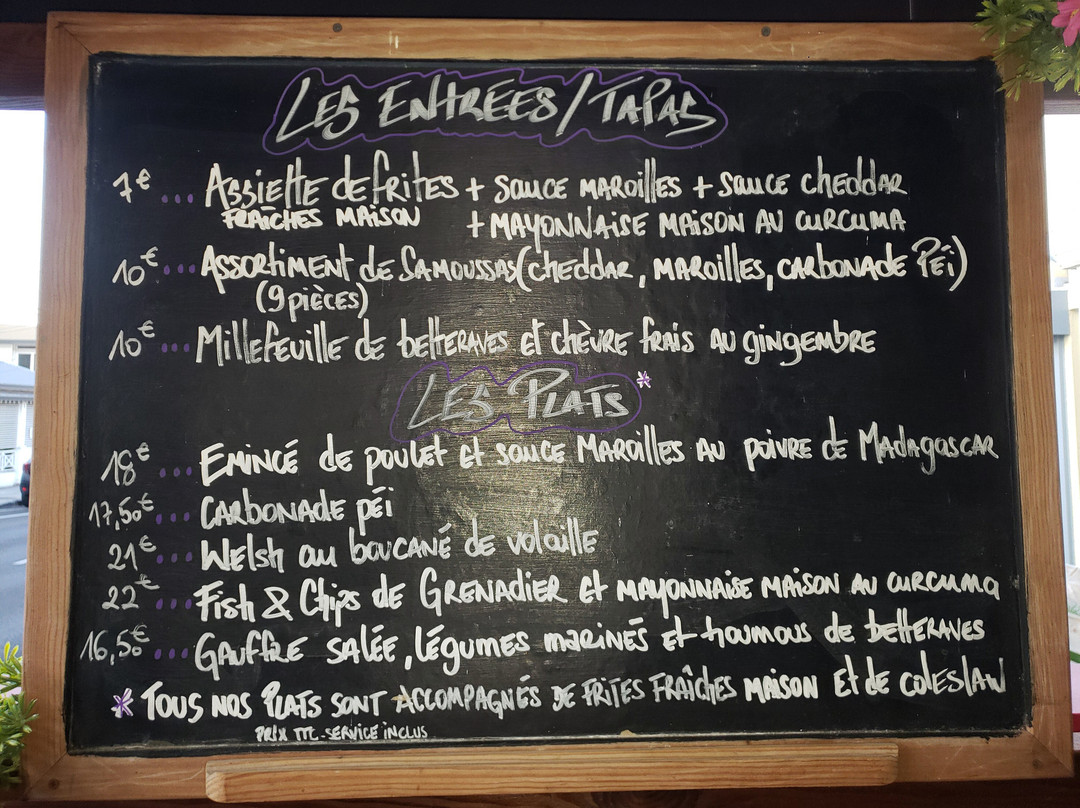 LES ENTREES/TAPAS
7€ ... Assiette de frites + sauce maroilles + sauce cheddar
fraîches maison + mayonnaise maison au curcuma
10€ ... Assortiment de Samoussas (cheddar, maroilles, carbonade Péi)
(9 pièces)
10€ ... Millefeuille de betteraves et chèvre frais au gingembre
LES PLATS*
18€ ... Emincé de poulet et sauce Maroilles au poivre de Madagascar
17,50€ ... Carbonade péi
21€ ... Welsh au boucané de volaille
22€ ... Fish & Chips de Grenadier et mayonnaise maison au curcuma
16,50€ ... Gauffre salée, légumes marinés et houmous de betteraves
* Tous nos plats sont accompagnés de frites fraîches maison et de coleslaw
Prix TTC - Service inclus